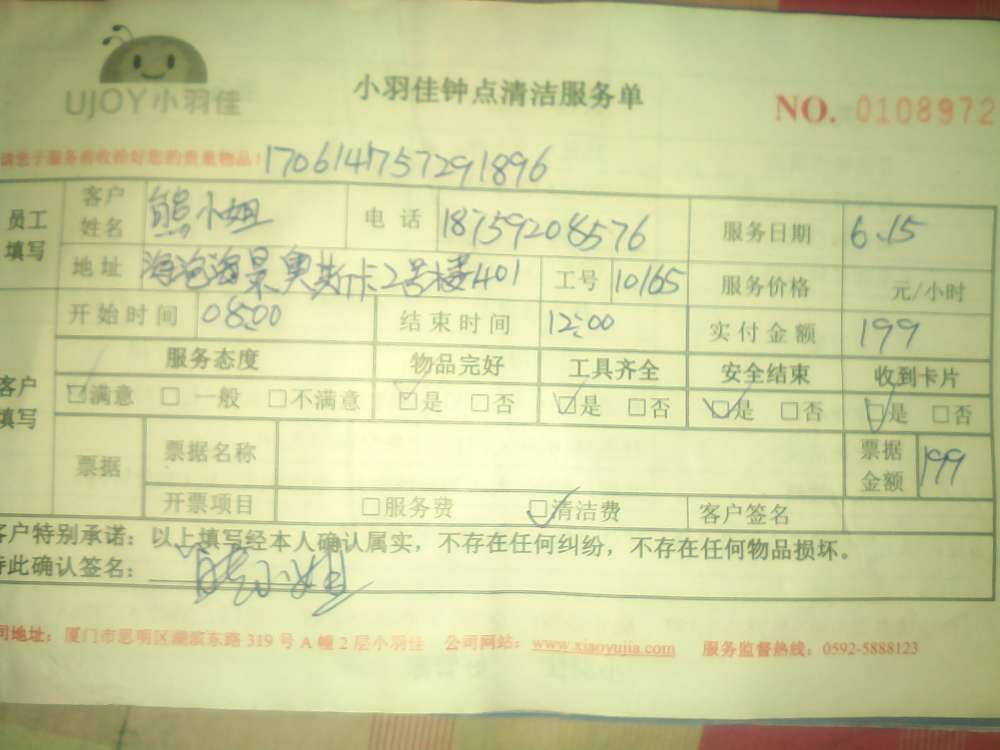 UJOY小羽佳
小羽佳钟点清洁服务单
NO. 0108972
请您于服务前收拾好您的贵重物品!
1706141757291896
员工填写
客户姓名 熊小姐 电话 18759208576 服务日期 6.15
地址 海沧海景奥斯卡2号楼401 工号 10165 服务价格 元/小时
客户填写
开始时间 08:00 结束时间 12:00 实付金额 199
服务态度 物品完好 工具齐全 安全结束 收到卡片
☑满意 □一般 □不满意 ☑是 □否 ☑是 □否 ☑是 □否 ☑是 □否
票据 票据名称 票据金额 199
开票项目 □服务费 ☑清洁费 客户签名
客户特别承诺：以上填写经本人确认属实，不存在任何纠纷，不存在任何物品损坏。
特此确认签名： 熊小姐
司地址：厦门市思明区湖滨东路 319 号 A 幢 2 层小羽佳 公司网站：www.xiaoyujia.com 服务监督热线：0592-5888123